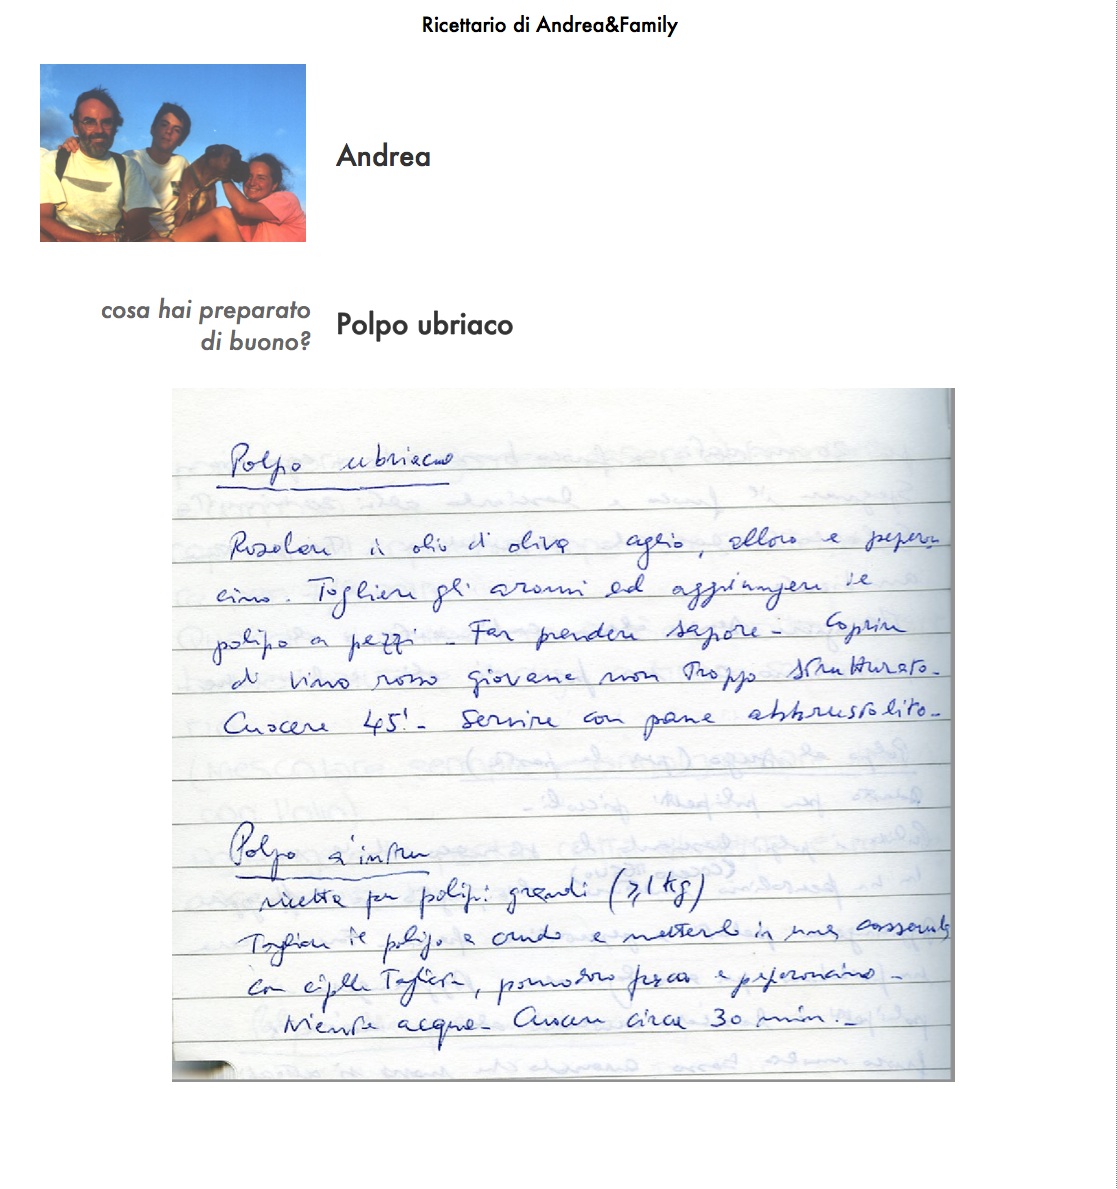 Ricettario di Andrea&Family
Andrea
cosa hai preparato
di buono?
Polpo ubriaco
Polpo ubriaco
Rosolare in olio di oliva aglio, alloro e peperon
cino. Togliere gli aromi ed aggiungere il
polipo a pezzi - Far prendere sapore - Coprire
di vino rosso giovane non troppo strutturato -
Cuocere 45' - Servire con pane abbrustolito -
Polpo a
ricetta per polipi grandi (≥1 kg)
Tagliare il polipo a crudo e metterlo in una casseruola
con cipolle tagliata, pomodoro fresco e peperoncino -
Niente acqua - Cuocere circa 30 min. -